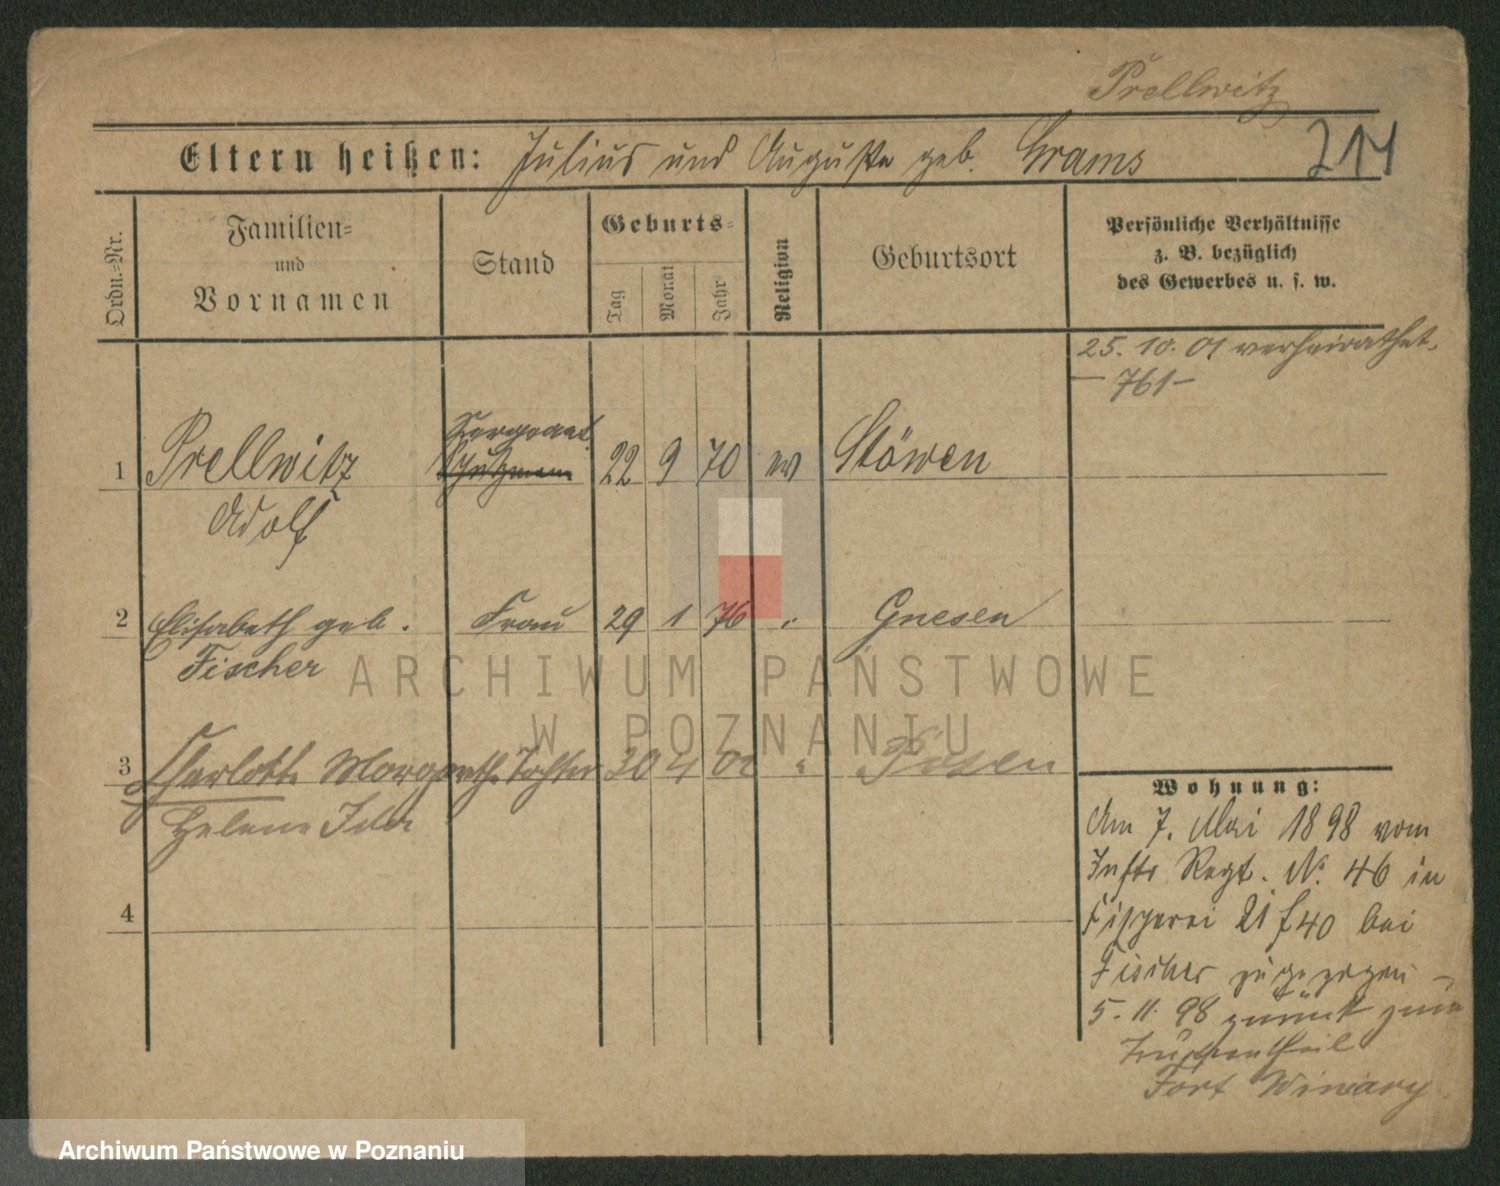 Prellwitz
Eltern heißen: Julius und Auguste geb. Grams
214
Ordn.-Nr.
Familien-
und
Vornamen
Stand
Geburts-
Tag
Monat
Jahr
Religion
Geburtsort
Persönliche Verhältnisse
z. B. bezüglich
des Gewerbes u. s. w.
25. 10. 01 verheirathet.
— 761 —
Sergeant
1 Prellwitz Schutzmann 22 9 70 ev Stöwen
Adolf
2 Elisabeth geb. Frau 29 1 76 " Gnesen
Fischer
3 Charlotte Margarethe Tochter 30 4 02 " Posen
Helene Ida
4
Wohnung:
Am 7. Mai 1898 vom
Inftr Regt. No. 46 in
Fischerei 21 f 40 bei
Fischer zugezogen –
5. 11. 98 zurück zum
Truppentheil
Fort Winiary
ARCHIWUM PAŃSTWOWE
W POZNANIU
Archiwum Państwowe w Poznaniu